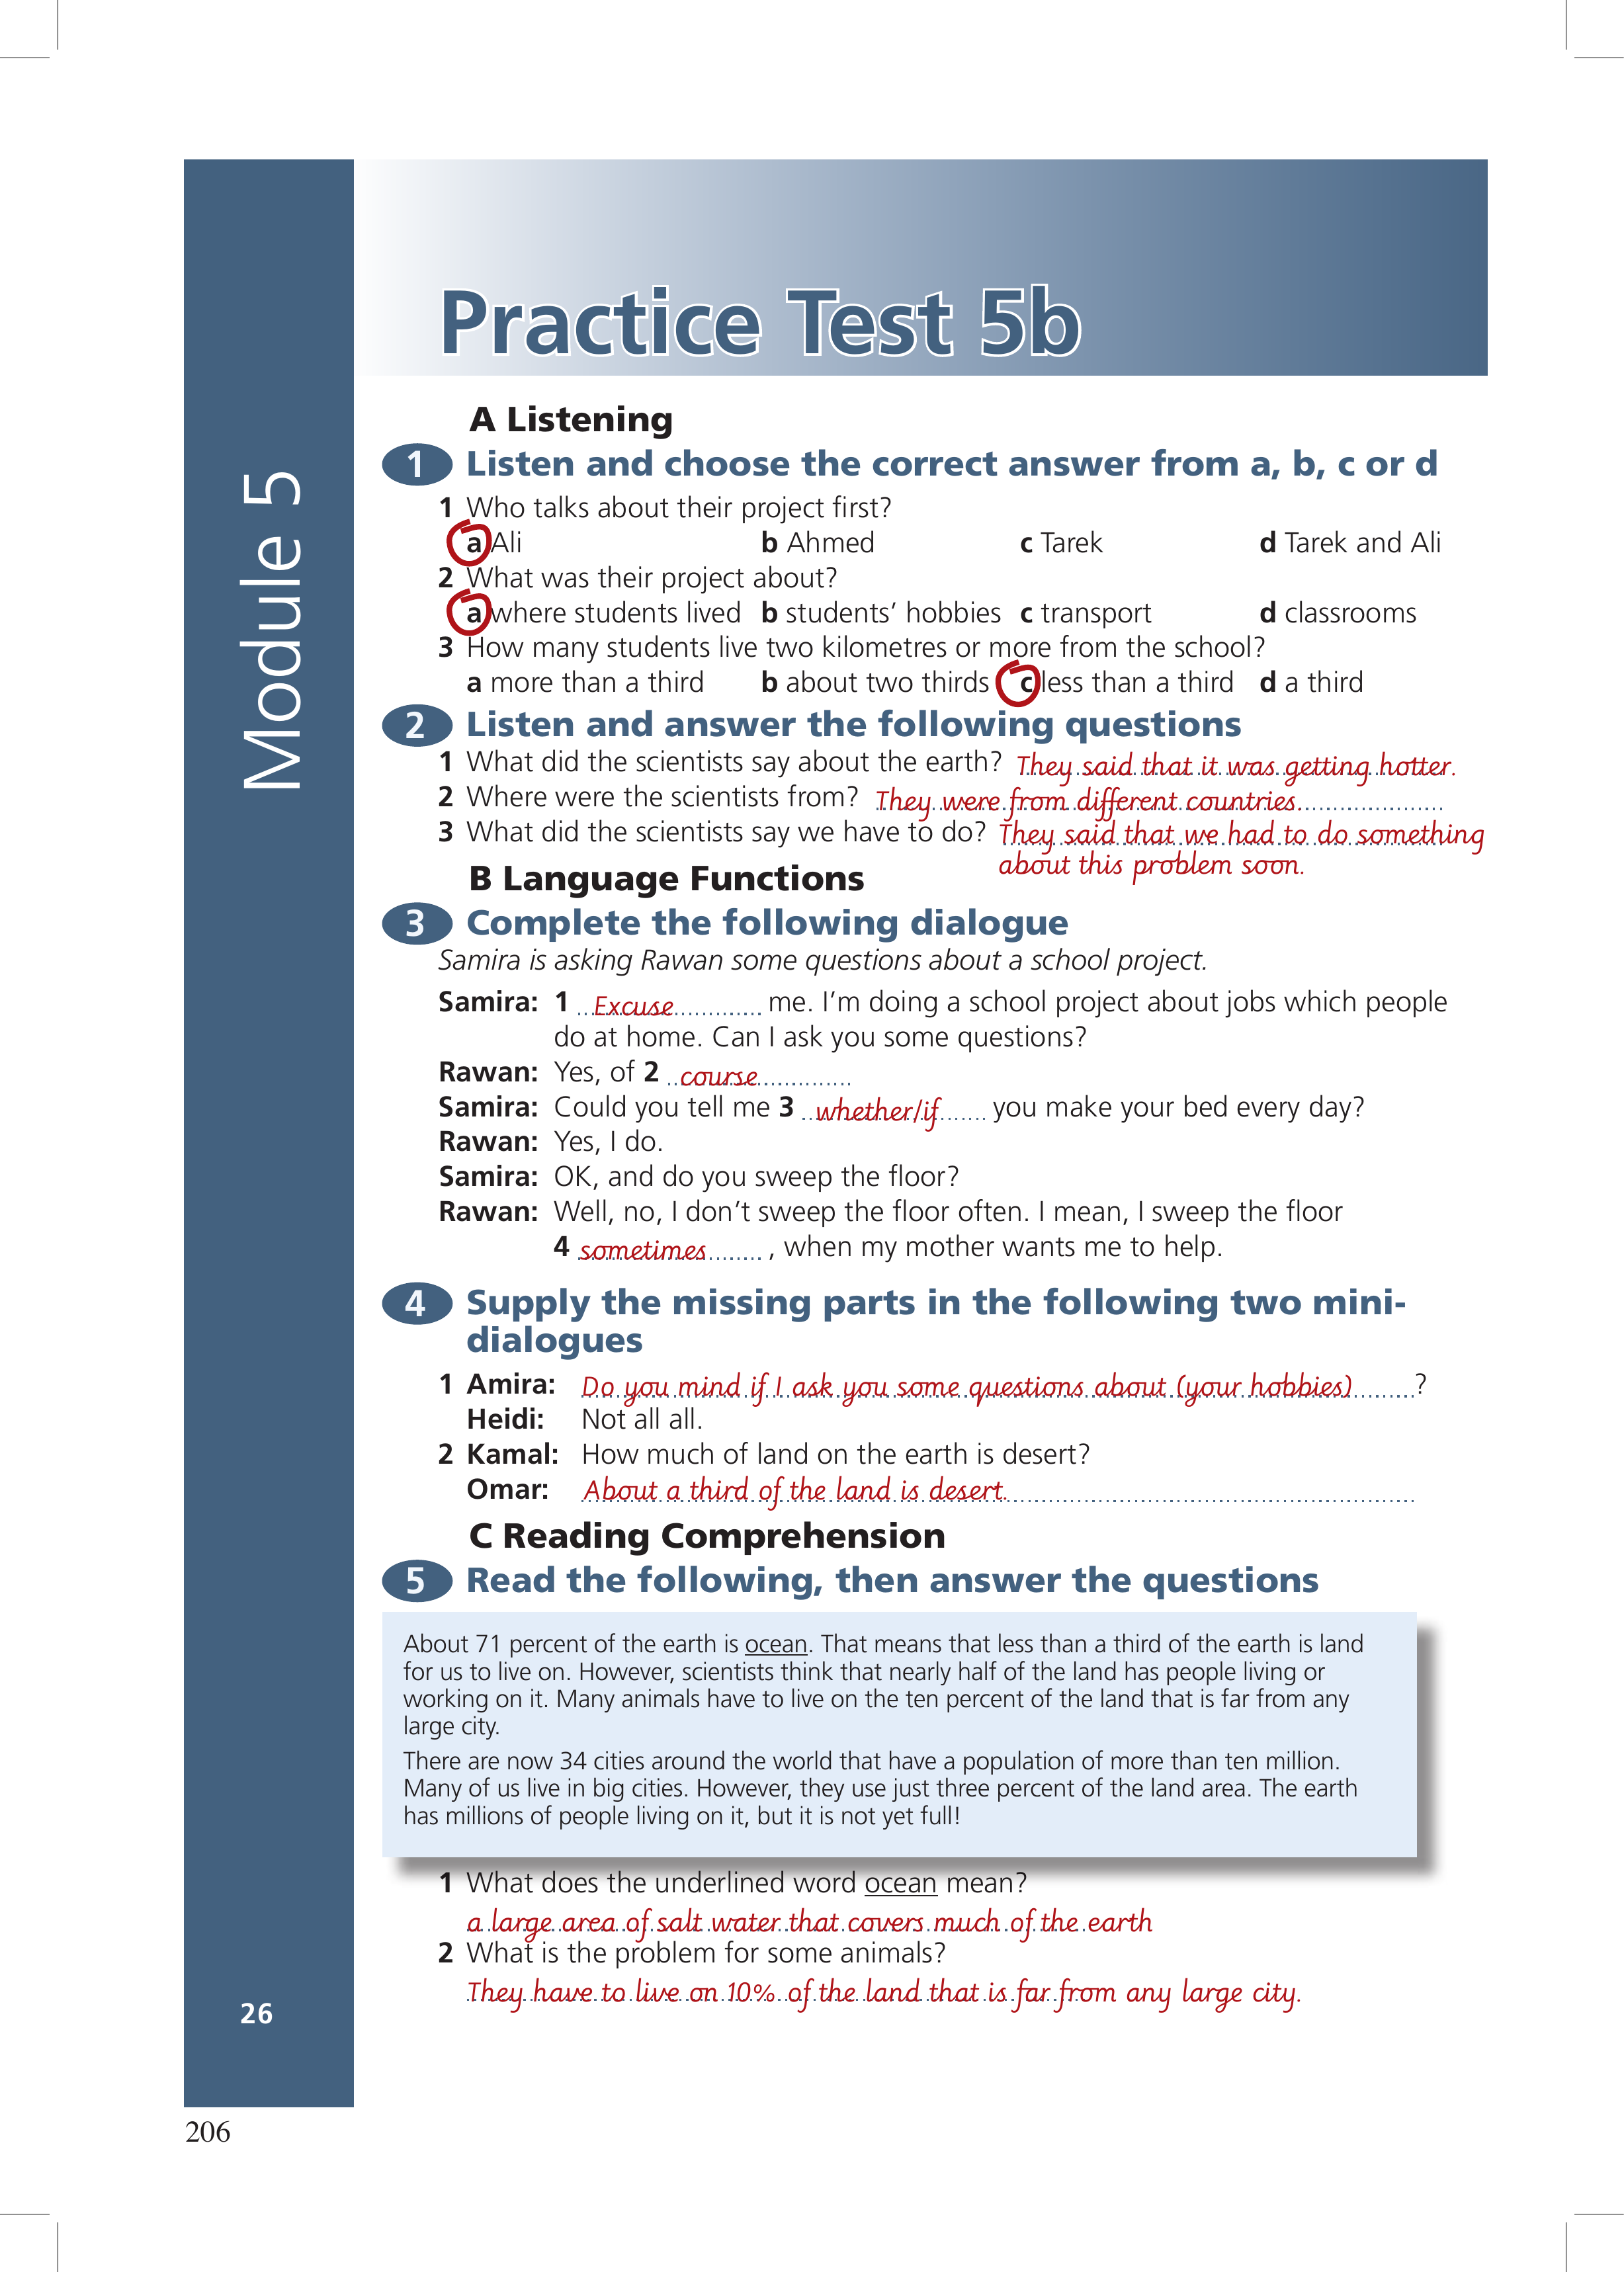 Module 5
Practice Test 5b
A Listening
1 Listen and choose the correct answer from a, b, c or d
1 Who talks about their project first?
a Ali b Ahmed c Tarek d Tarek and Ali
2 What was their project about?
a where students lived b students’ hobbies c transport d classrooms
3 How many students live two kilometres or more from the school?
a more than a third b about two thirds c less than a third d a third
2 Listen and answer the following questions
1 What did the scientists say about the earth? They said that it was getting hotter.
2 Where were the scientists from? They were from different countries.
3 What did the scientists say we have to do? They said that we had to do something
about this problem soon.
B Language Functions
3 Complete the following dialogue
Samira is asking Rawan some questions about a school project.
Samira: 1 Excuse me. I’m doing a school project about jobs which people
do at home. Can I ask you some questions?
Rawan: Yes, of 2 course
Samira: Could you tell me 3 whether/if you make your bed every day?
Rawan: Yes, I do.
Samira: OK, and do you sweep the floor?
Rawan: Well, no, I don’t sweep the floor often. I mean, I sweep the floor
4 sometimes , when my mother wants me to help.
4 Supply the missing parts in the following two mini-
dialogues
1 Amira: Do you mind if I ask you some questions about (your hobbies) ?
Heidi: Not all all.
2 Kamal: How much of land on the earth is desert?
Omar: About a third of the land is desert.
C Reading Comprehension
5 Read the following, then answer the questions
About 71 percent of the earth is ocean. That means that less than a third of the earth is land
for us to live on. However, scientists think that nearly half of the land has people living or
working on it. Many animals have to live on the ten percent of the land that is far from any
large city.
There are now 34 cities around the world that have a population of more than ten million.
Many of us live in big cities. However, they use just three percent of the land area. The earth
has millions of people living on it, but it is not yet full!
1 What does the underlined word ocean mean?
a large area of salt water that covers much of the earth
2 What is the problem for some animals?
They have to live on 10% of the land that is far from any large city.
26
206